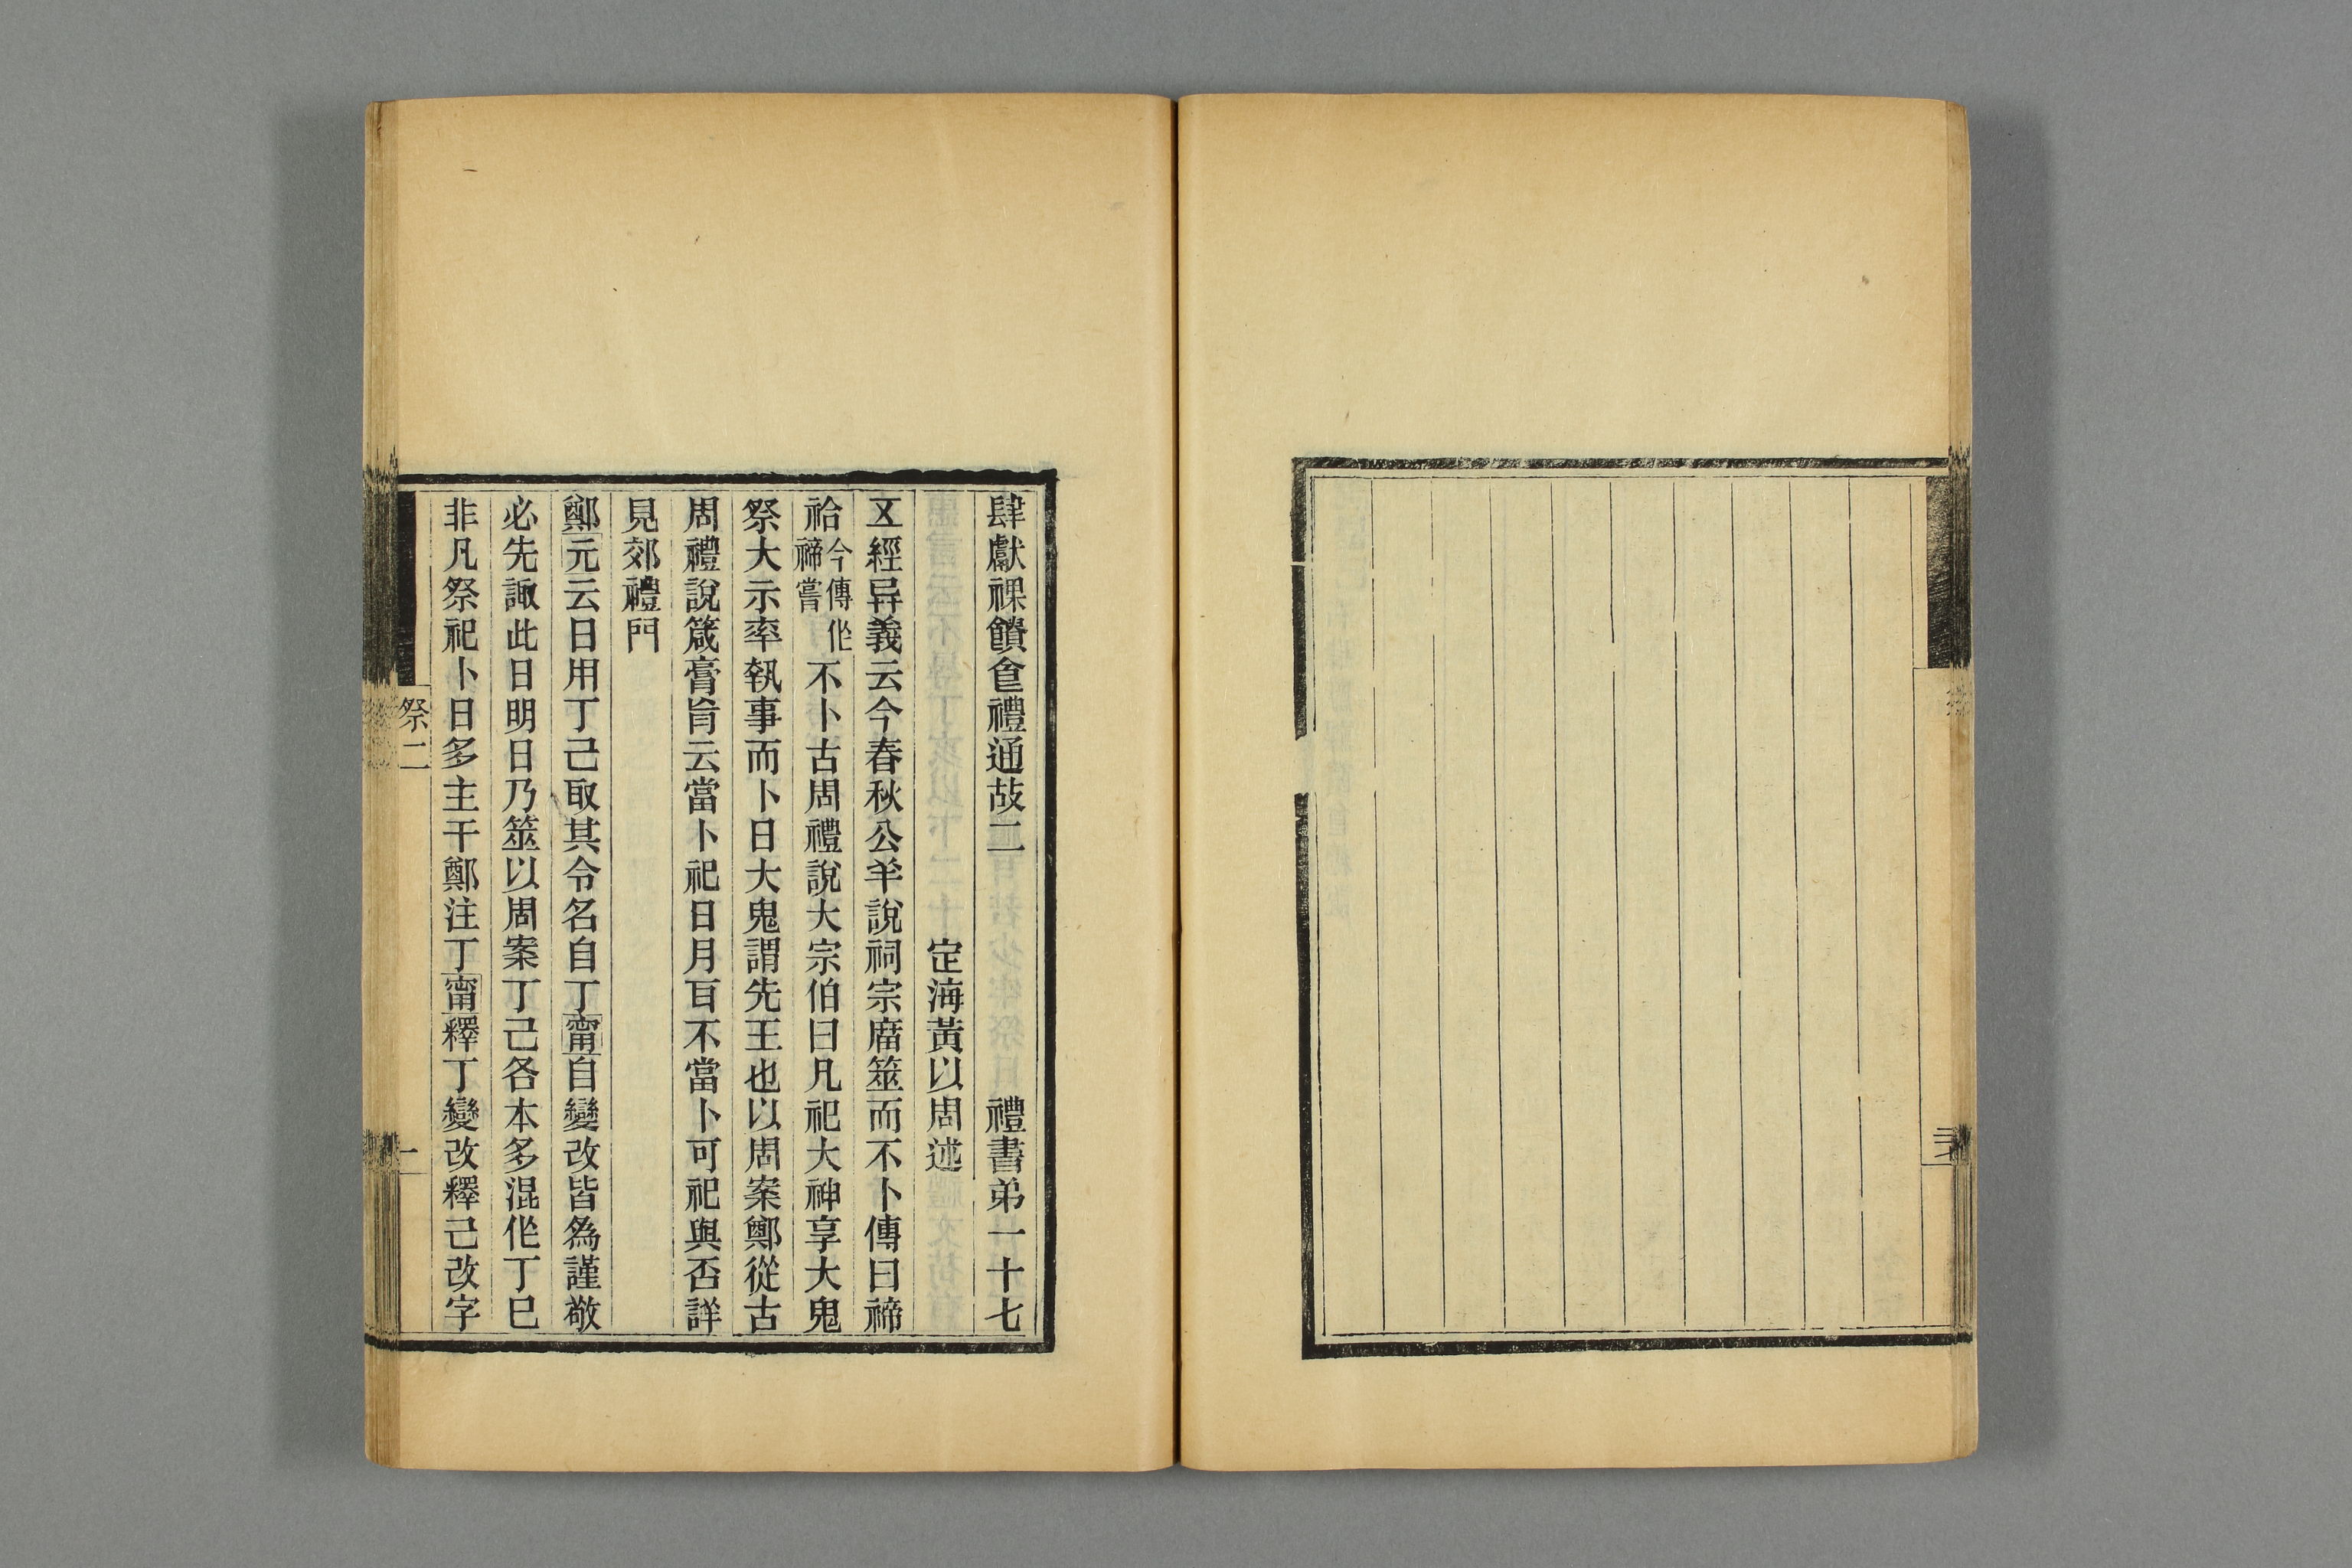 肆獻祼饋食禮通故二 禮書弟一十七
定海黃以周述
五經异義云今春秋公羊說祠宗庿筮而不卜傳曰禘
祫今傳作禘嘗不卜古周禮說大宗伯曰凡祀大神享大鬼
祭大示率執事而卜日大鬼謂先王也以周案鄭從古
周禮說箴膏肓云當卜祀日月百不當卜可祀與否詳
見郊禮門
鄭元云日用丁己取其令名自丁甯自變改皆爲謹敬
必先諏此日明日乃筮以周案丁己各本多混作丁巳
非凡祭祀卜日多主干鄭注丁甯釋丁變改釋己改字
祭二
一